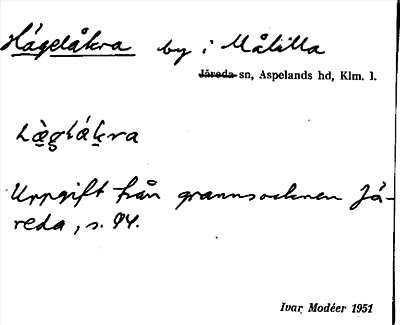 Hägelåkra by i Målilla
Järeda sn, Aspelands hd, Klm. l.
Uppgift från grannsocknen Jä-
reda, s. 94.
Ivar Modéer 1951